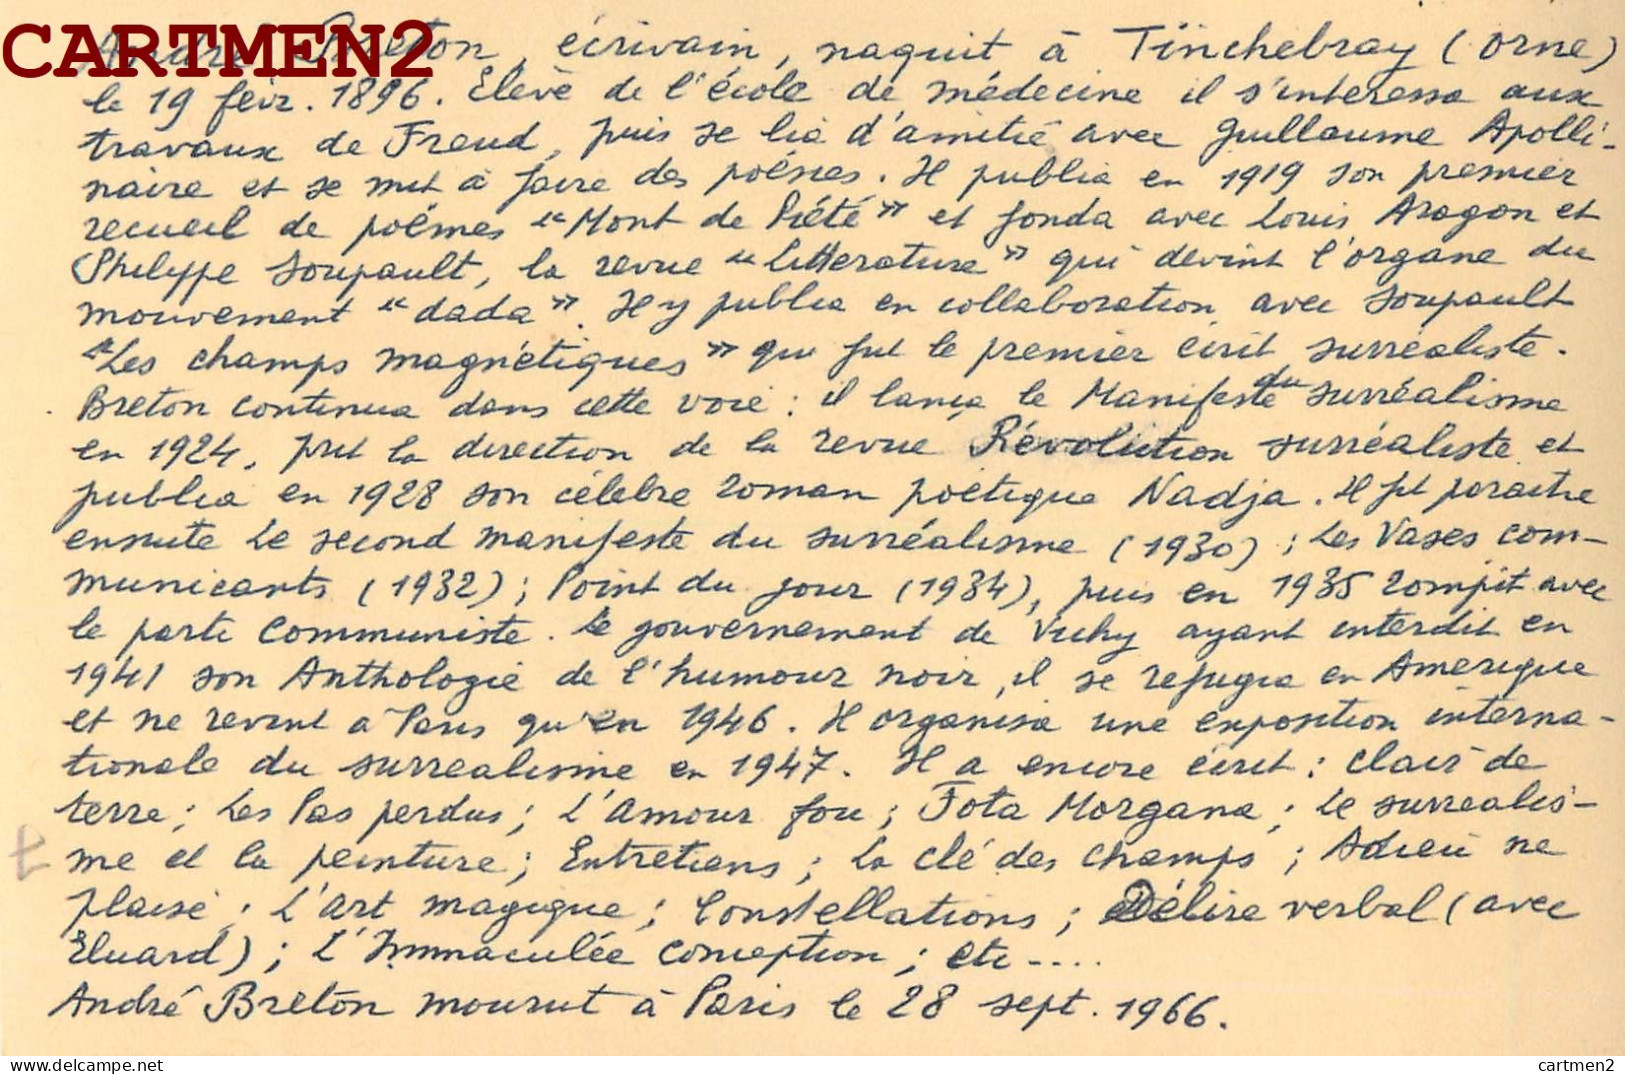 CARTMEN2
André Breton, écrivain, naquit à Tinchebray (Orne)
le 19 févr. 1896. Elève de l'école de médecine il s'interessa aux
travaux de Freud, puis se lia d'amitié avec Guillaume Apolli-
naire et se mit à faire des poésies. Il publia en 1919 son premier
recueil de poèmes "Mont de Piété" et fonda avec Louis Aragon et
Philippe Soupault, la revue "litterature" qui devint l'organe du
mouvement "dada". Il y publia en collaboration avec Soupault
"Les champs magnétiques" qui fut le premier écrit surréaliste.
Breton continua dans cette voie : il lança le Manifeste du surréalisme
en 1924, prit la direction de la revue Révolution surréaliste et
publia en 1928 son célèbre roman poétique Nadja. Il fit paraitre
ensuite Le second manifeste du surréalisme (1930) ; Les Vases com-
municants (1932) ; Point du jour (1934), puis en 1935 rompit avec
le parti communiste. Le gouvernement de Vichy ayant interdit en
1941 son Anthologie de l'humour noir, il se refugia en Amerique
et ne revint à Paris qu'en 1946. Il organisa une exposition interna-
tionale du surrealisme en 1947. Il a encore écrit : Clair de
terre ; Les Pas perdus ; L'Amour fou ; Fata Morgana ; Le surrealis-
me et la peinture ; Entretiens ; La clé des champs ; Adieu ne
plaise ; L'art magique ; Constellations ; Délire verbal (avec
Eluard) ; L'Immaculée conception ; etc....
André Breton mourut à Paris le 28 sept. 1966.
https://www.delcampe.net
cartmen2